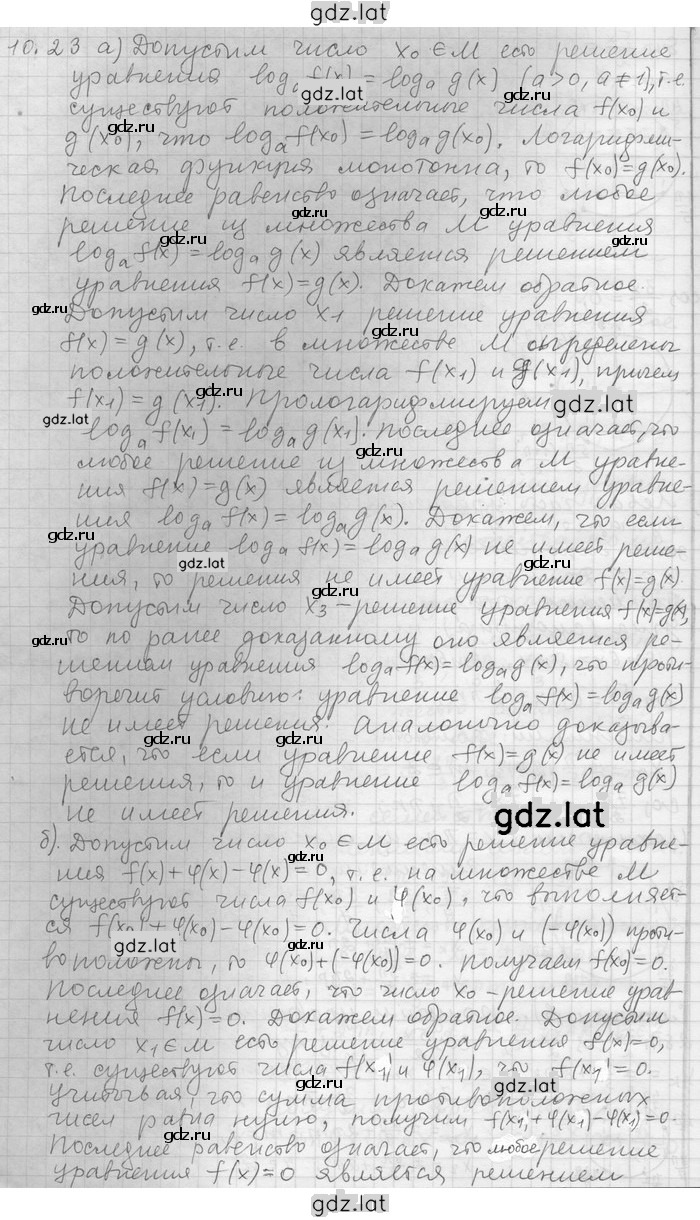 gdz.lat
10.23 а) Допустим число x₀ ∈ M есть решение
уравнения logₐ f(x) = logₐ g(x) (a>0, a≠1), т.е.
gdz.lat
существуют положительные числа f(x₀) и
g(x₀), что logₐ f(x₀) = logₐ g(x₀). Логарифми-
gdz.ru gdz.ru
ческая функция монотонна, то f(x₀)=g(x₀).
gdz.ru
Последнее равенство означает, что любое
решение из множества M уравнения
gdz.ru
logₐ f(x) = logₐ g(x) является решением
gdz.ru gdz.ru
уравнения f(x)=g(x). Докажем обратное.
gdz.ru
Допустим число x₁ решение уравнения
gdz.ru
f(x)=g(x), т.е. в множестве M определены
положительные числа f(x₁) и g(x₁), причем
gdz.ru
f(x₁) = g(x₁). Прологарифмируем
gdz.ru gdz.lat
logₐ f(x₁) = logₐ g(x₁). Последнее означает, что
gdz.lat
gdz.ru
любое решение из множества M уравне-
gdz.ru
ния f(x)=g(x) является решением уравне-
gdz.ru
ния logₐ f(x) = logₐ g(x). Докажем, что если
уравнение logₐ f(x)=logₐ g(x) не имеет реше-
gdz.lat
ния, то решения не имеет уравнение f(x)=g(x).
gdz.ru
Допустим число x₃ – решение уравнения f(x)=g(x),
то по ранее доказанному оно является ре-
gdz.ru
шением уравнения logₐ f(x)=logₐ g(x), что проти-
gdz.ru
воречит условию: уравнение logₐ f(x)=logₐ g(x)
не имеет решения. Аналогично доказыва-
gdz.ru
ется, что если уравнение f(x)=g(x) не имеет
gdz.ru
решения, то и уравнение logₐ f(x)=logₐ g(x)
не имеет решения.
gdz.lat
б). Допустим число x₀ ∈ M есть решение уравне-
gdz.ru
ния f(x)+φ(x)-φ(x)=0, т.е. на множестве M
существуют числа f(x₀) и φ(x₀), что выполняет-
gdz.ru
ся f(x₀)+φ(x₀)-φ(x₀)=0. Числа φ(x₀) и (-φ(x₀)) проти-
gdz.lat gdz.ru
воположены, то φ(x₀)+(-φ(x₀))=0. Получаем f(x₀)=0.
gdz.ru
Последнее означает, что число x₀ – решение урав-
gdz.ru
нения f(x)=0. Докажем обратное. Допустим
число x₁∈M есть решение уравнения f(x)=0,
gdz.ru
т.е. существуют числа f(x₁) и φ(x₁), что f(x₁)=0.
gdz.lat
Учитывая, что сумма противоположных
чисел равна нулю, получим f(x₁)+φ(x₁)-φ(x₁)=0.
gdz.ru gdz.ru
Последнее равенство означает, что любое решение
gdz.ru
уравнения f(x)=0 является решением
gdz.lat